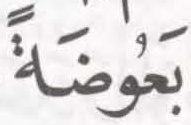 بَعُوضَةً